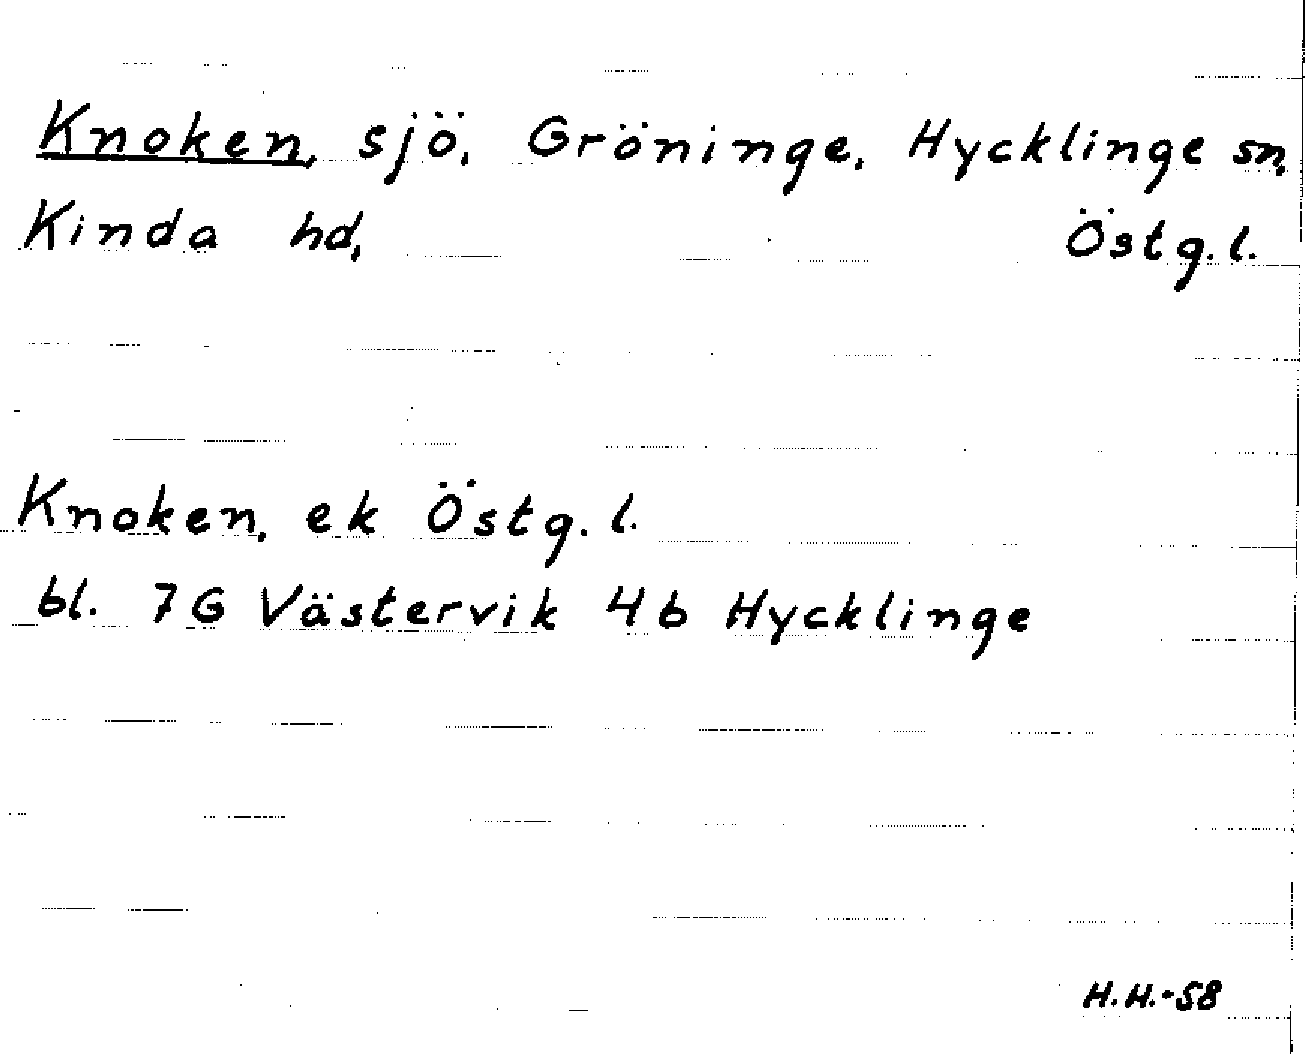 Knoken, sjö, Gröninge, Hycklinge sn,
Kinda hd, Östg. l.
Knoken, ek Östg. l.
bl. 7G Västervik 4b Hycklinge
H.H.-58